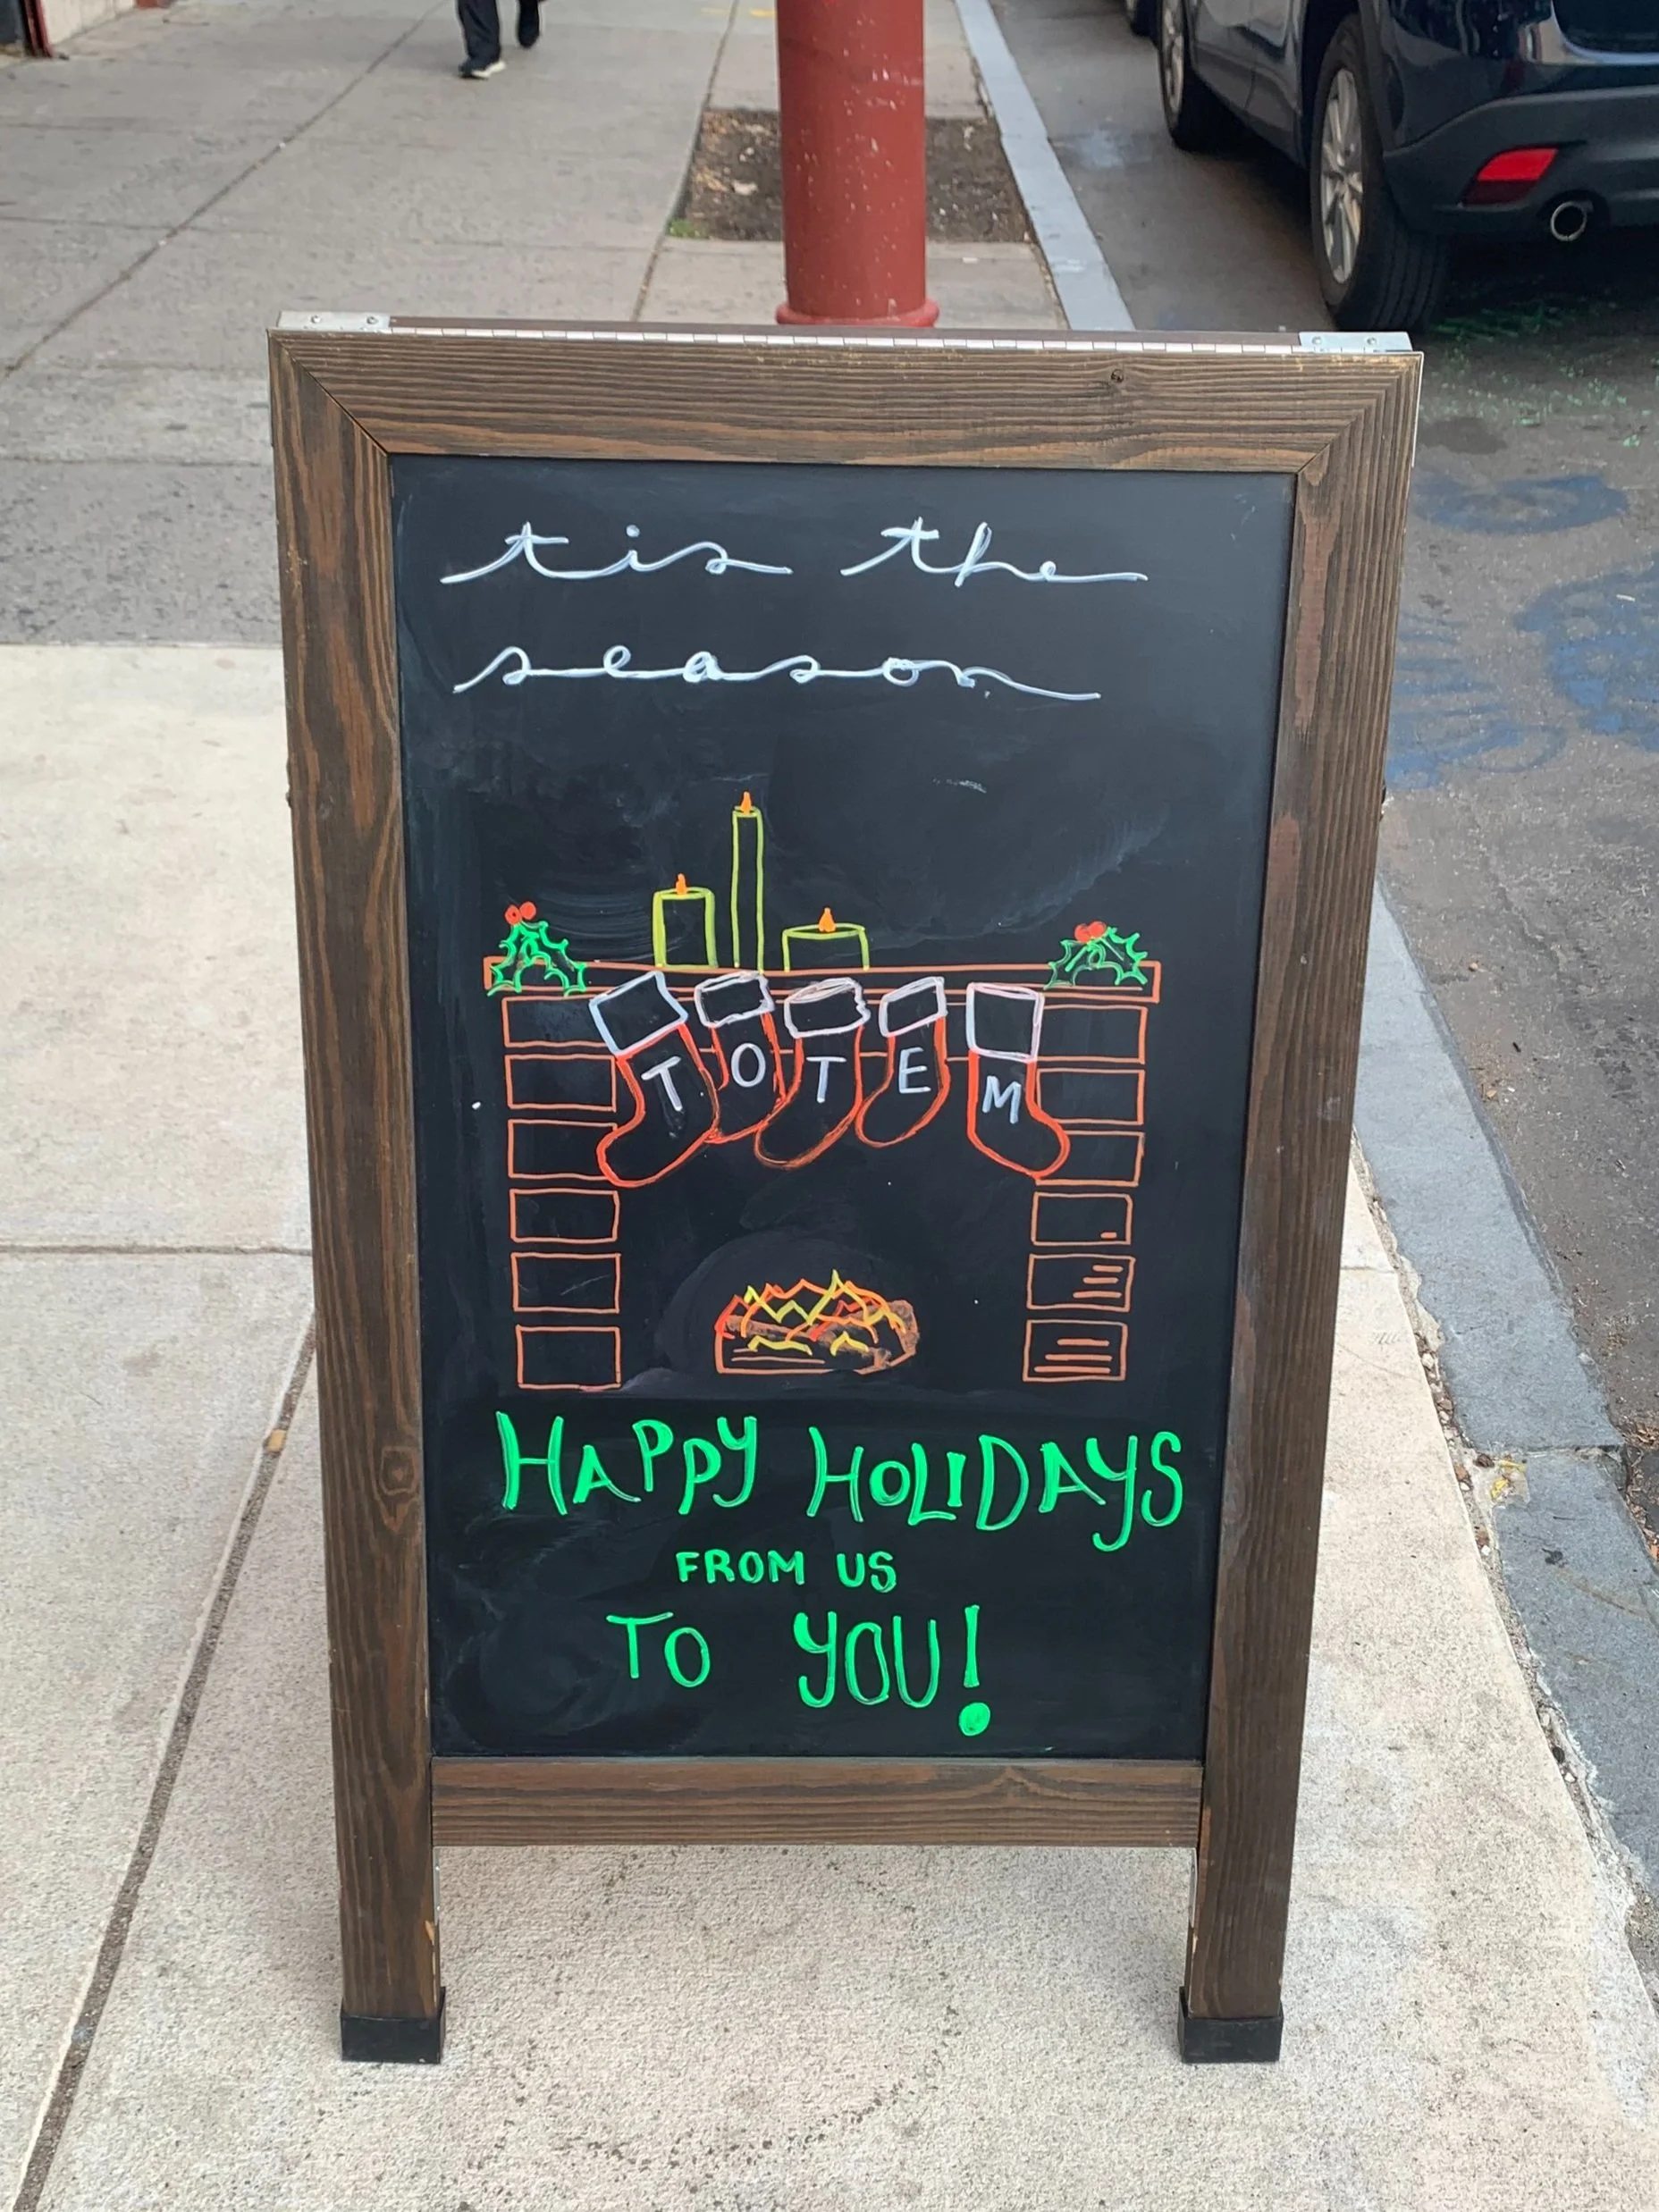 tis the
season
TOTEM
HAPPY HOLIDAYS
FROM US
TO YOU!